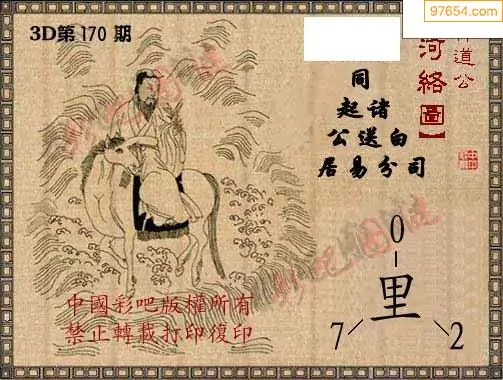 97654.com
3D第170期
道公
河絡圖】
同
起诸
公送白
居易分司
0
里
7 2
中國彩吧版權所有
禁止轉載打印復印